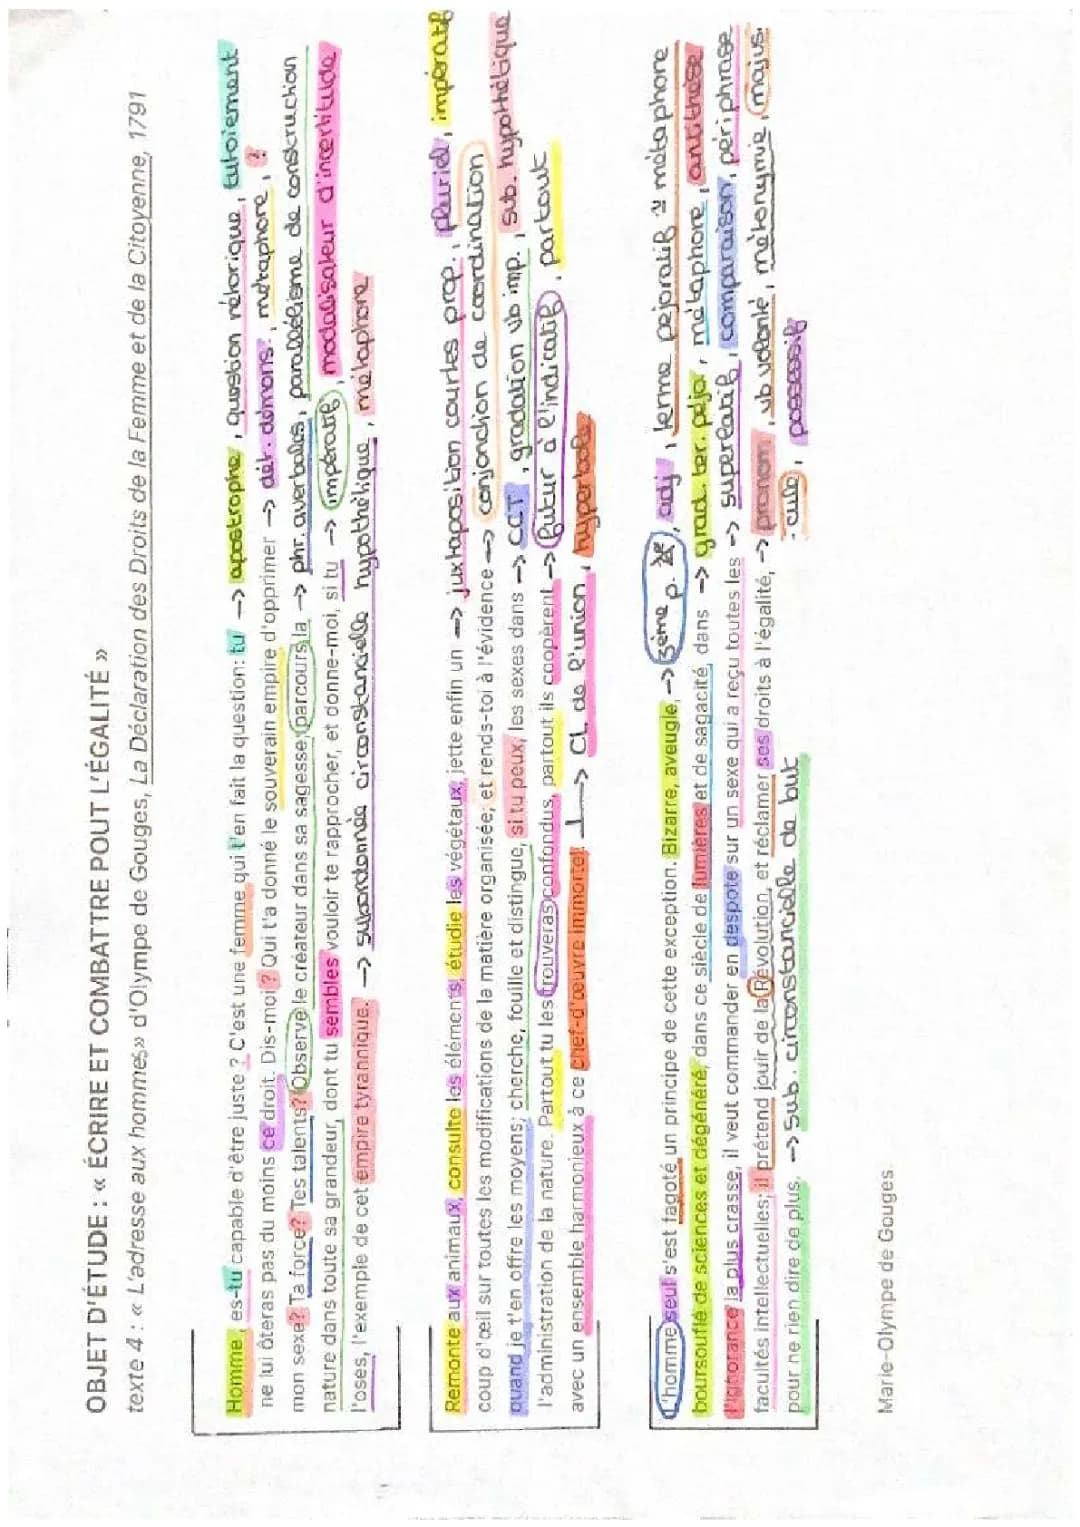 OBJET D'ÉTUDE : « ÉCRIRE ET COMBATTRE POUT L'ÉGALITÉ »
texte 4 : « L'adresse aux hommes» d'Olympe de Gouges, La Déclaration des Droits de la Femme et de la Citoyenne, 1791
Homme, es-tu capable d'être juste ? C'est une femme qui t'en fait la question: tu → apostrophe, question rétorique, tutoiement
ne lui ôteras pas du moins ce droit. Dis-moi? Qui t'a donné le souverain empire d'opprimer → dét. démons., métaphore, ?
mon sexe? Ta force? Tes talents? Observe le créateur dans sa sagesse; parcours la → phr. averbales, parallélisme de construction
nature dans toute sa grandeur, dont tu sembles vouloir te rapprocher, et donne-moi, si tu → impératif, modalisateur d'incertitude
l'oses, l'exemple de cet empire tyrannique. → subordonnée circonstancielle hypothétique, métaphore
Remonte aux animaux, consulte les éléments, étudie les végétaux, jette enfin un → juxtaposition courtes prop., pluriel, impératif
coup d'œil sur toutes les modifications de la matière organisée; et rends-toi à l'évidence → conjonction de coordination
quand je t'en offre les moyens; cherche, fouille et distingue, si tu peux, les sexes dans → CCT, gradation vb imp., sub. hypothétique
l'administration de la nature. Partout tu les trouveras confondus, partout ils coopèrent → futur à l'indicatif, partout
avec un ensemble harmonieux à ce chef-d'œuvre immortel. → CL de l'union, hyperbole
L'homme seul s'est fagoté un principe de cette exception. Bizarre, aveugle, → 3ème p., adj, terme péjoratif ≃ métaphore
boursouflé de sciences et dégénéré, dans ce siècle de lumières et de sagacité, dans → grad. ter. péjo, métaphore, antithèse
l'ignorance la plus crasse, il veut commander en despote sur un sexe qui a reçu toutes les → superlatif, comparaison, périphrase
facultés intellectuelles; il prétend jouir de la Révolution, et réclamer ses droits à l'égalité, → pronom, vb volonté, métonymie, majus.
pour ne rien dire de plus. → sub. circonstancielle de but
cule, possessif
Marie-Olympe de Gouges